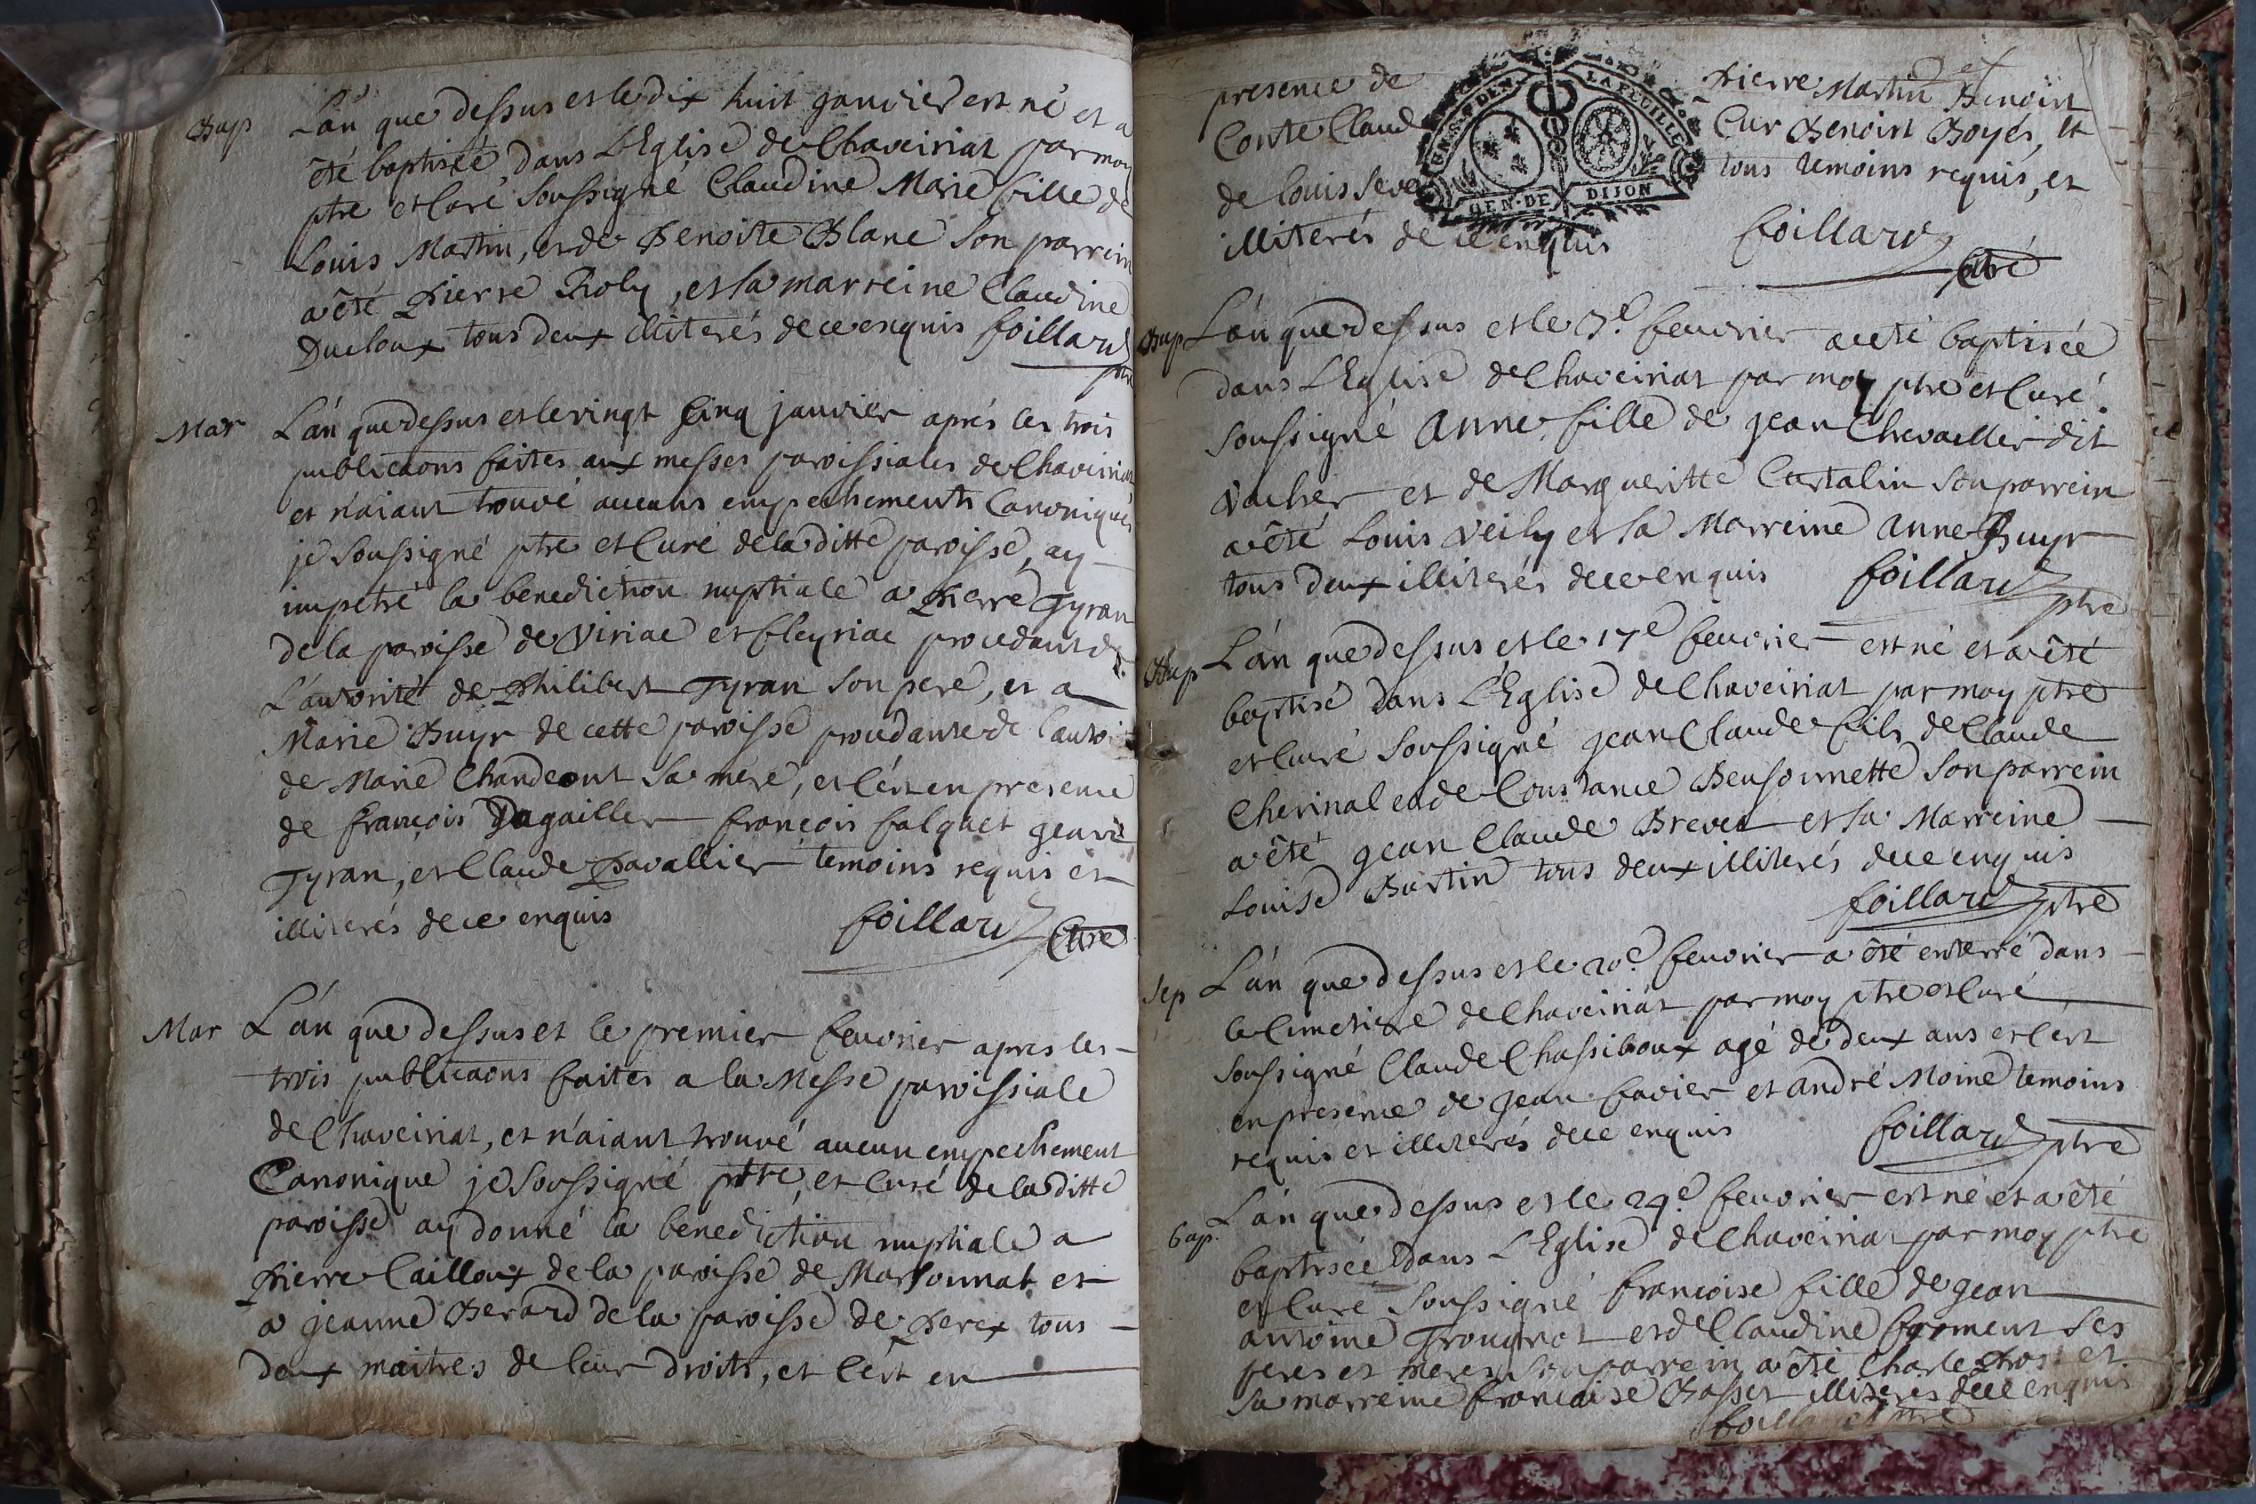 Bap
L'an que dessus et le dix huit janvier est né et a
êté baptisée dans L'Eglise de Chaveiriat par moy
ptre et Curé soussigné Claudine Marie fille de
Louis Martin, et de Benoite Blanc son parrein
a êté Pierre Roly, et sa marreine Claudine
Ducloux tous deux illiterés de ce enquis foillard
ptre
Mar
L'an que dessus et le vingt cinq janvier aprés les trois
publicaons faites aux messes paroissiales de Chaveiriat
et n'aiant trouvé aucuns empechements Canoniques
je soussigné ptre et Curé de la ditte paroisse, ay
impetré la benediction nuptiale a Pierre Tyran
de la paroisse de Viriac et fleyriac procedant de
L'autorité de Philibert Tyran son pere, et a
Marie Buyr de cette paroisse procedante de l'autori
de Marie Chandeont sa mere, et c'ést en presence
de françois Dagailler françois falquet
Tyran, et Claude Pavallier temoins requis et
illiterés de ce enquis foillard ptre
Mar
L'an que dessus et le premier feuvrier apres les
trois publicaons faites a la Messe paroissiale
de Chaveiriat, et n'aiant trouvé aucun empechement
Canonique je soussigné ptre, et Curé de la ditte
paroisse ay donné la benediction nuptiale a
Pierre Cailloux de la paroisse de Marsonnat et
a jeanne Berard de la paroisse de Perex tous
deux maitres de leur droits, et c'ést en
presence de Pierre Martin Benoist
Conte Claud Cur Benoist Boyés, et
de Louis Seve tous temoins requis, et
illiterés de ce enquis foillard ptre
GEN. DE DIJON
LA FEUILLE
Bap
L'an que dessus et le 7e feuvrier a eté baptisée
dans L'Eglise de Chaveiriat par moy ptre et Curé
soussigné Anne fille de jean Chevallier dit
Vacher et de Margueritte Cartalin son parrein
a êté Louis Veily et sa Marreine anne Buyr
tous deux illiterés de ce enquis foillard ptre
Bap
L'an que dessus et le 17e feuvrier est né et a êté
baptisé dans L'Eglise de Chaveiriat par moy ptre
et Curé soussigné jean Claude fils de Claude
Cherinal et de Constance Beusournette son parrein
a êté jean Claude Brevet et sa Marreine
Louise Bartin tous deux illiterés de ce enquis
foillard ptre
Sep
L'an que dessus et le 20e feuvrier a êté enterré dans
le Cimetiere de Chaveiriat par moy ptre et Curé
soussigné Claude Chassiboux agé de deux ans et c'ést
en presence de jean favier et andré Moine temoins
requis et illiterés de ce enquis foillard ptre
bap.
L'an que dessus et le 24e feuvrier est né et a êté
baptisée dans L'Eglise de Chaveiriat par moy ptre
et Curé soussigné françoise fille de jean
antoine Trougnot et de Claudine froment ses
peres et meres son parrein a êté Charle Pros et
sa marreine francoise Basset illiterés de ce enquis
foillard ptre